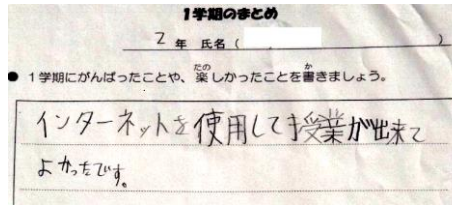 1学期のまとめ
2年 氏名（ ）
● 1学期にがんばったことや、楽しかったことを書きましょう。
インターネットを使用して授業が出来て
よかったです。